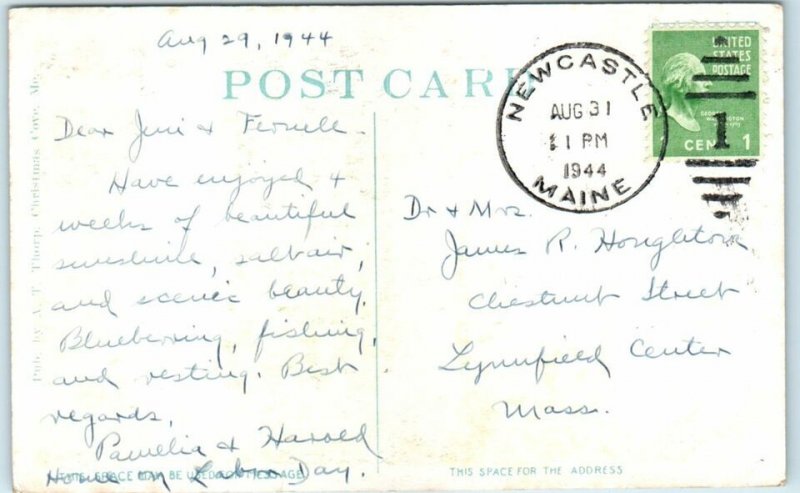 Aug 29, 1944
POST CARD
NEWCASTLE
AUG 31
1 PM
1944
MAINE
UNITED
STATES
POSTAGE
GEORGE
WASHINGTON
1
CENT 1
Pub. by A. T. Thorp, Christmas Cove, Me.
Dear Jim &
Have enjoyed 4
weeks of beautiful
sunshine, salt air,
and scenic beauty.
Blueberrying, fishing,
and resting. Best
regards,
Pamelia & Harold
Home by Labor Day.
Dr & Mrs.
James R. Houghton
Chestnut Street
Lynnfield Center
Mass.
THIS SPACE MAY BE USED FOR MESSAGE
THIS SPACE FOR THE ADDRESS